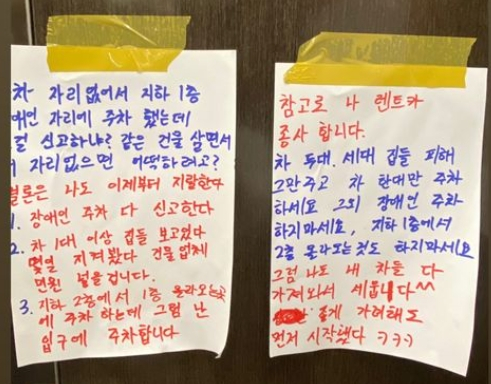 자리없어서 지하 1층
자리에 주차 했는데
신고하냐? 같은 건물 살면서
자리없으면 어떡하려고?
나도 이제부터 지랄한다
1. 장애인 주차 다 신고한다
2. 차 1대 이상 집들 보고있다
몇일 지켜봤다 건물업체
민원 넣을겁니다.
3. 지하 2층에서 1층 올라오는곳
에 주차 하는데 그럼 난
입구에 주차합니다
참고로 나 렌트카
종사 합니다.
차 두대, 세대 집들 피해
그만주고 차 한대만 주차
하세요 그외 장애인 주차
하지마세요, 지하1층에서
2층 올라오는것도 하지마세요
그럼 나도 내 차들 다
가져와서 세웁니다^^
먼저 시작했다 ㅋㅋㅋ